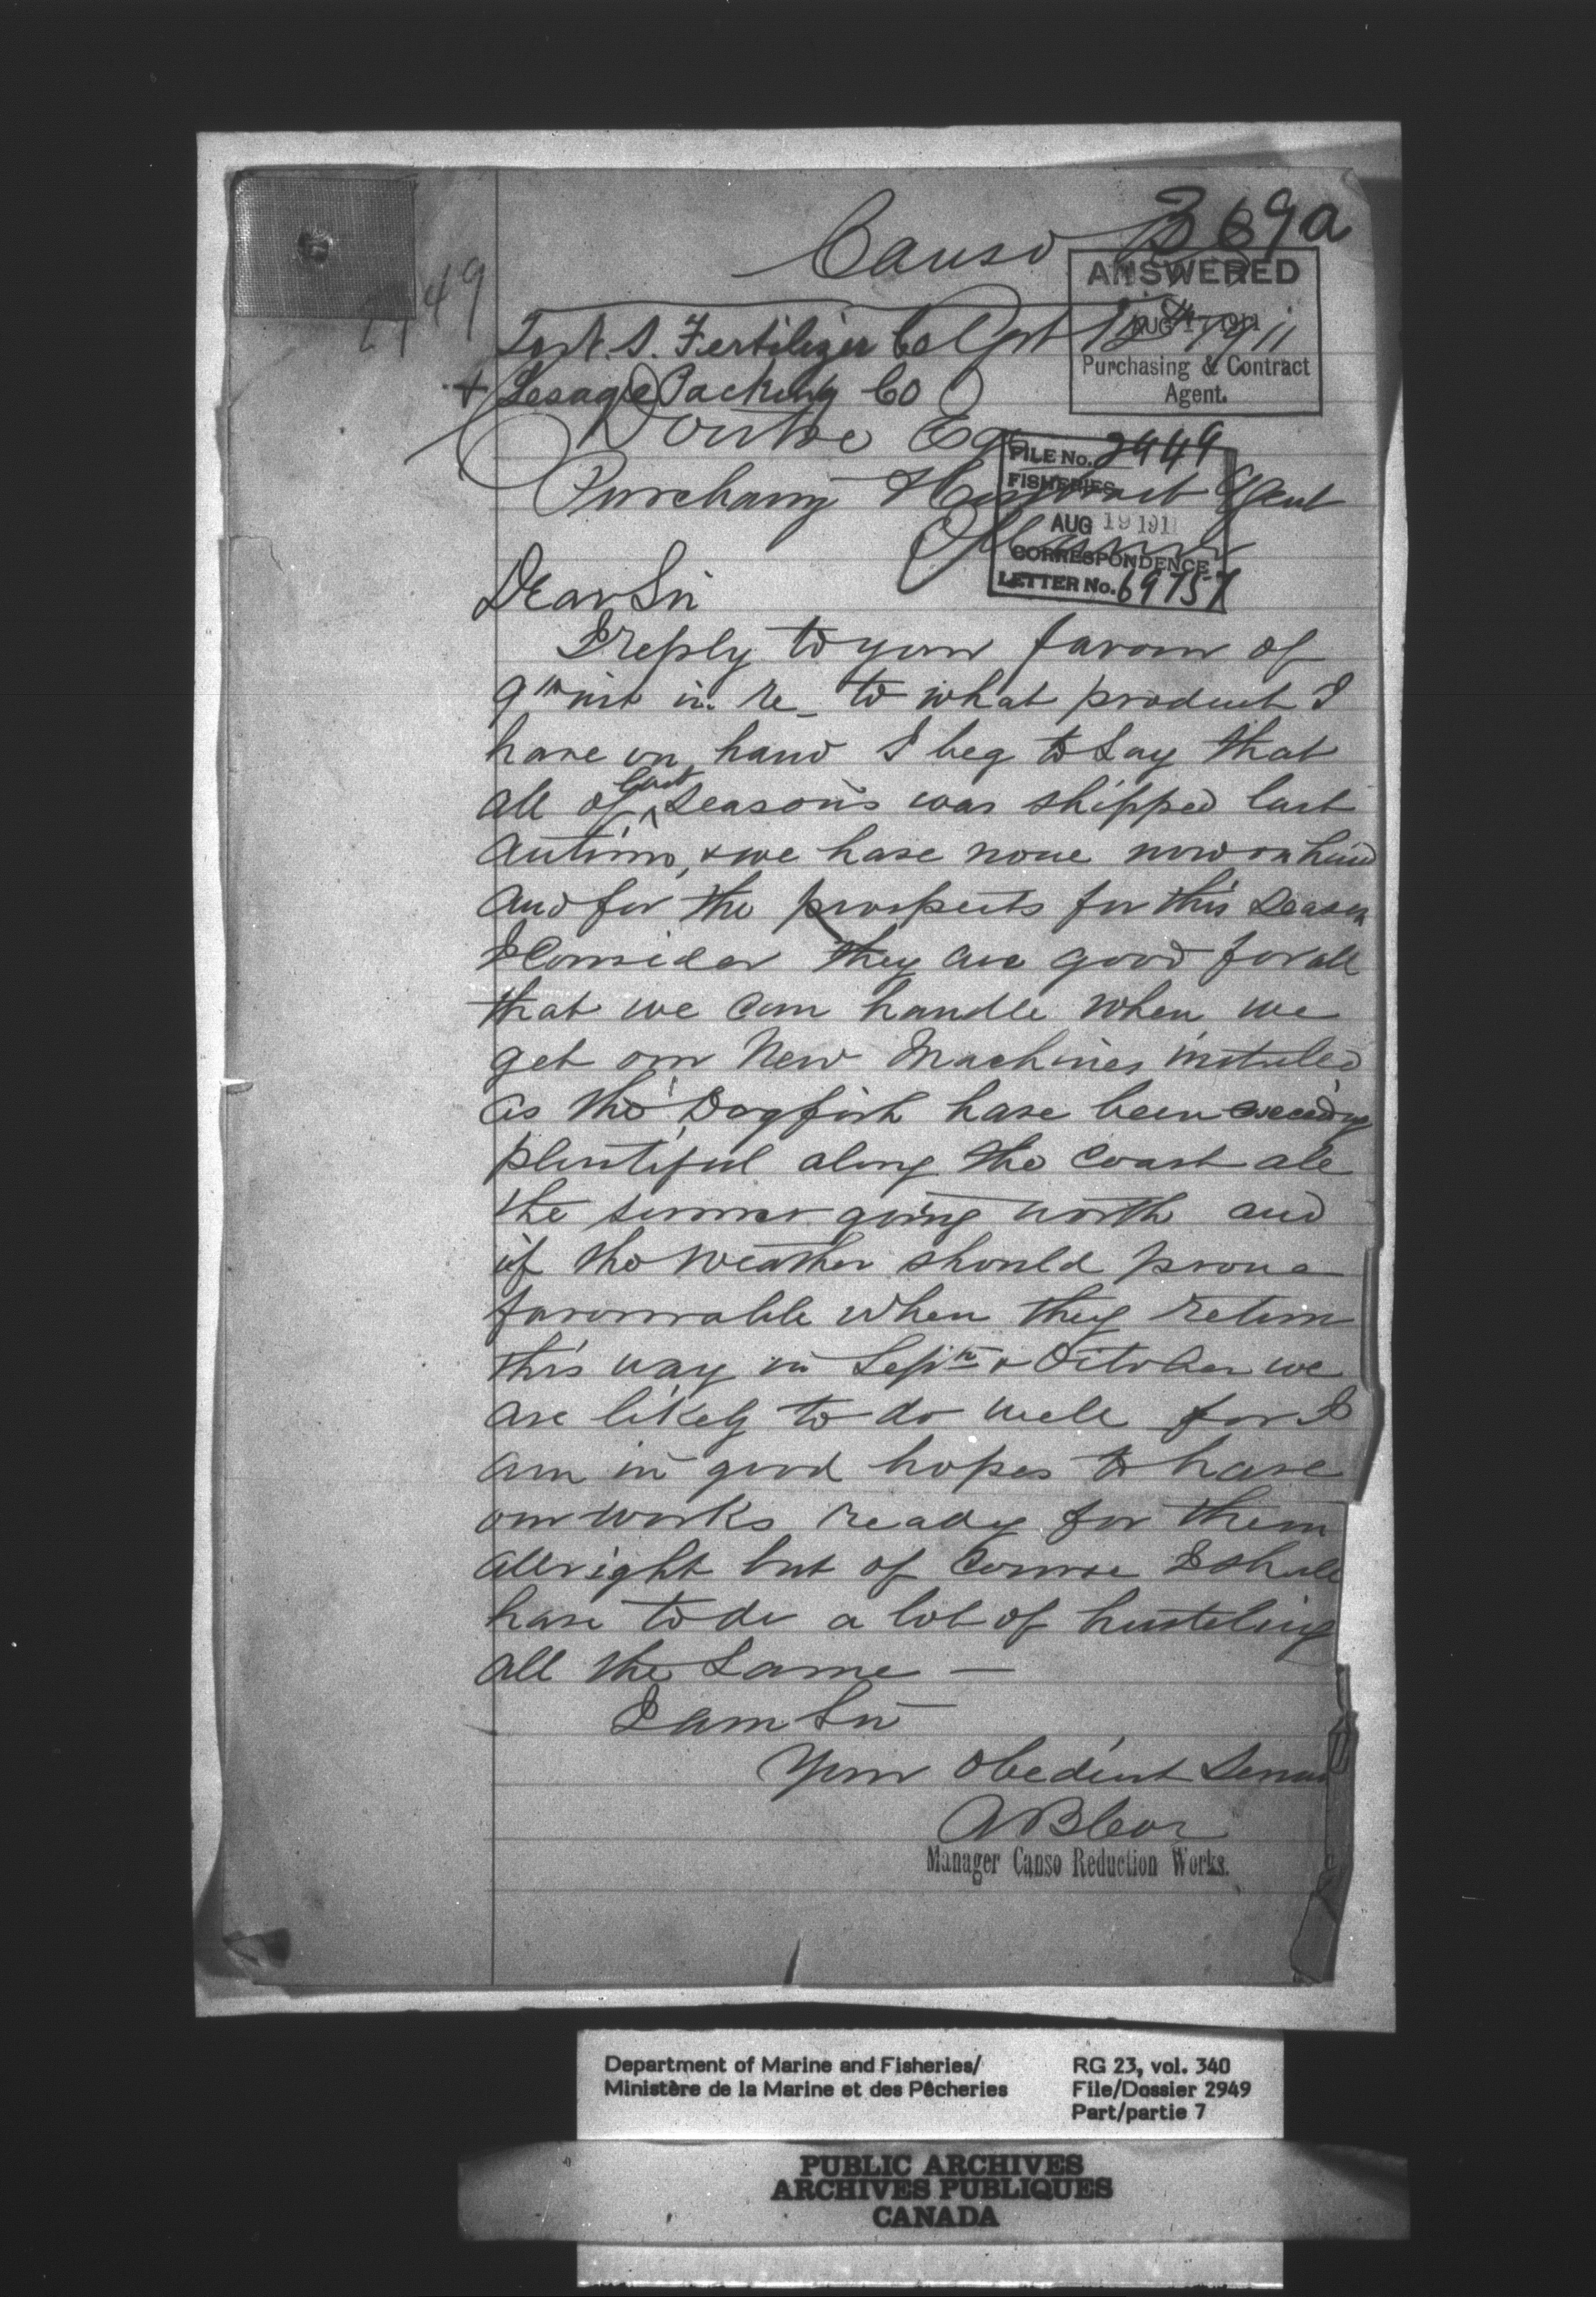 369a
Canso
ANSWERED
AUG 17 1911
Purchasing & Contract
Agent.
2949
To N.S. Fertilizer Co
12th 1911
+ Lesage Packing Co
Doutre Esq
FILE No. 2949
FISHERIES
AUG 19 1911
CORRESPONDENCE
LETTER No. 69757
Purchasing & Contract Agent
Ottawa
Dear Sir
I reply to your favour of
9th inst in re to what product I
have on hand I beg to say that
all of last seasons was shipped last
Autumn, & we have none now on hand
and for the prospects for this season
I Consider they are good for all
that we can handle when we
get our New Machines instaled
as the Dogfish have been exceeding
plentiful along the coast all
the summer going north and
if the weather should prove
favourable when they return
this way in Septr & October we
are likely to do well for I
am in good hopes to have
our works ready for them
allright but of Course I shall
have to do a lot of husteling
all the same —
I am Sir
Your obedient Servant
Manager Canso Reduction Works.
Department of Marine and Fisheries/
Ministère de la Marine et des Pêcheries
RG 23, vol. 340
File/Dossier 2949
Part/partie 7
PUBLIC ARCHIVES
ARCHIVES PUBLIQUES
CANADA